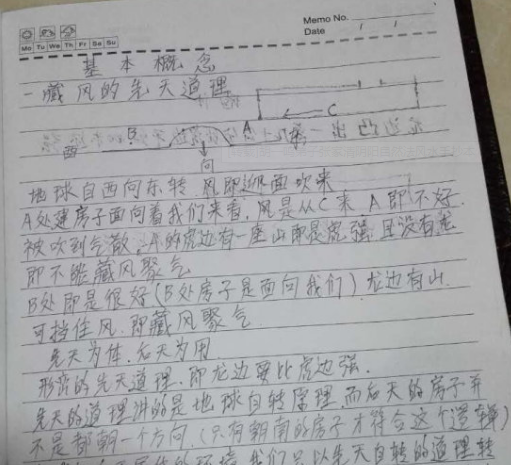 Memo No.
Date / /
Mo Tu We Th Fr Sa Su
基本概念
一藏风的先天道理
C
西 B A 东
向
地球自西向东转 风即迎面吹来
A处建房子面向着我们来看,风是从C来 A即不好
被吹到气散,A的虎边有一座山即是虎强 且没有龙
即不能藏风聚气
B处即是很好(B处房子是面向我们)龙边有山
可挡住风.即藏风聚气
先天为体,后天为用
形峦的先天道理.即龙边要比虎边强.
先天的道理讲的是地球自转原理 而后天的房子并
不是都朝一个方向.(只有朝南的房子才符合这个逻辑)
我们只以先天自转的道理转